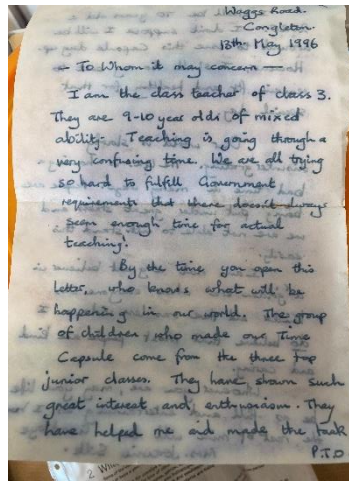 Waggs Road.
Congleton.
13th May 1996
— To Whom it may concern —
I am the class teacher of class 3.
They are 9-10 year olds of mixed
ability. Teaching is going through a
very confusing time. We are all trying
so hard to fulfill Government
requirements that there doesn't always
seem enough time for actual
teaching.
By the time you open this
letter, who knows what will be
happening in our world. The group
of children who made our Time
Capsule come from the three top
junior classes. They have shown such
great interest and enthusiasm. They
have helped me and made the task
P.T.O
2